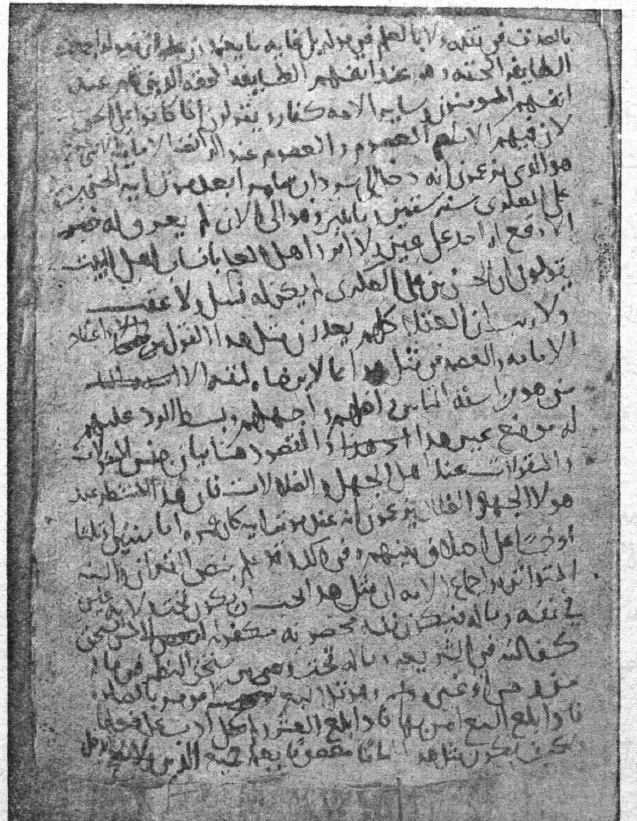 بالصدق في نقله ولا بالعلم في قوله بل غايه ما يعتمدون عليه ان يقولوا اجمعت
الطايفه المحقه وهم عند انفسهم الطايفه المحقه الذين هم عند
انفسهم المومنون وساير الامه كفار ويقولون انما كانوا على الحق
لان فيهم الامام المعصوم والمعصوم عند الرافضه الاماميه
هو الذي يزعمون انه دخل الى سرداب سامرا بعد موت ابيه الحسن بن
علي العسكري سنه ستين وماتين وهو الى الان لم يعرف له خبر
ولا وقع له احد على عين ولا اثر واهل العلم بانساب اهل البيت
يقولون ان الحسن بن علي العسكري لم يكن له نسل ولا عقب
ولا ريب ان العقلا كلهم يعدون مثل هذا القول من اعتقاد
الامامه والعصمه في مثل هذا مما لا يرضاه لنفسه الا
من هو من اسفه الناس واضلهم واجهلهم وبسط الرد عليهم
له موضع غير هذا والمقصود هنا بيان جنس المقولات
والمنقولات عند اهل الجهل والضلالات فان هذا المنتظر عند
هولا الجهال الضلال يزعمون انه عند موت ابيه كان عمره اما سنتين او ثلثا
او خمسا على اختلاف بينهم في ذلك وقد علم بنص القران والسنه
المتواتره واجماع الامه ان مثل هذا يجب ان يكون تحت ولايه غيره
في نفسه وماله فيكون نفسه محضونه مكفوله
كفالته الشرعيه وماله تحت من يستحق النظر في ماله
من وصي او غيره وهو قبل السبع لا يومر بالصلاه
فاذا بلغ السبع امر بها فاذا بلغ العشر ولم يصل ادب على فعلها
فكيف يكون مثل هذا اماما معصوما يعلم جميع الدين